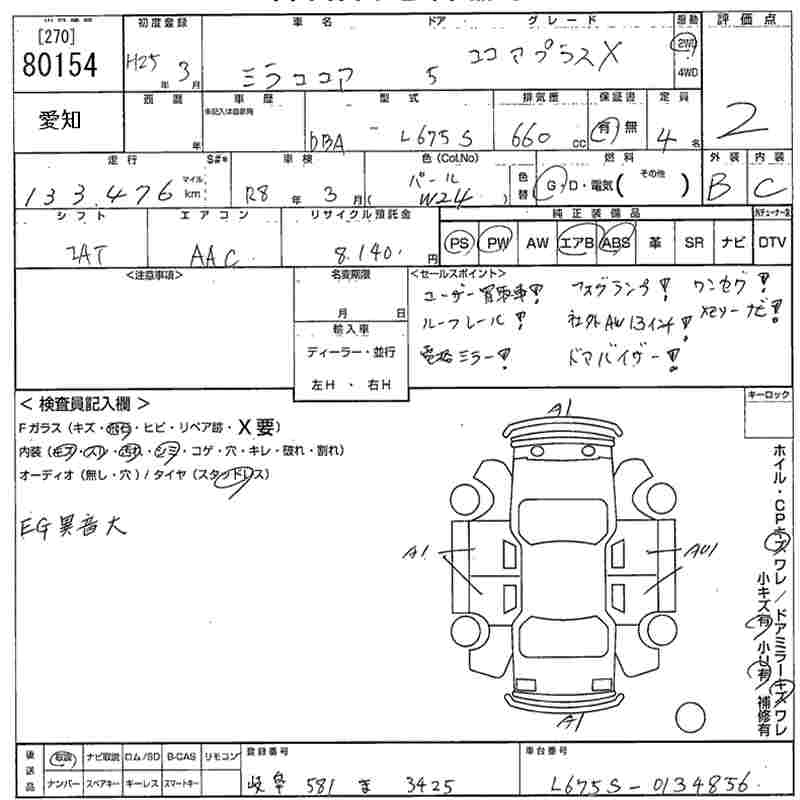 [270]
80154
初度登録 車名 ドア グレード 駆動 評価点
H25年 3月 ミラココア 5 ココアプラスX 2WD 4WD
愛知
車歴 型式 排気量 保証書 定員
未記入は自家用
年 DBA - L675S 660cc 有 無 4名 2
走行 S#* 車検 色(Col.No) 燃料 外装 内装
133,476 マイル km R8年 3月 (パール W24) 色替 G・D・電気( その他 ) B C
シフト エアコン リサイクル預託金 純正装備品
AAC 8,140円 PS PW AW エアB ABS 革 SR ナビ DTV
<注意事項> 名変期限 <セールスポイント>
月 日
輸入車
ディーラー・並行
左H ・ 右H
ユーザー買取車! フォグランプ! ワンセグ!
ルーフレール! 社外AW 13インチ! メモリーナビ!
電格ミラー! ドアバイザー!
<検査員記入欄> キーロック
Fガラス(キズ・飛石・ヒビ・リペア跡・X要)
内装(・スレ・汚れ・シミ・コゲ・穴・キレ・破れ・割れ)
オーディオ(無し・穴)/タイヤ(スタッドレス)
EG異音大
A1
A1 AU1
A1
ホイル・CPキズワレ/ドアミラーキズワレ
小キズ有 小U有 補修有
後送品 取説 ナビ取説 ロム/SD B-CAS リモコン 登録番号 車台番号
ナンバー スペアキー キーレス スマートキー 岐阜 581 ま 3425 L675S-0134856